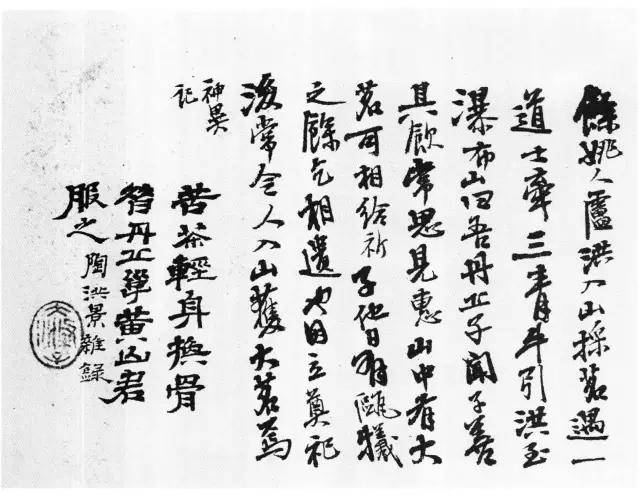 餘姚人盧洪入山採茗遇一
道士牽三青牛引洪至
瀑布山曰吾丹丘子聞子善
具飲常思見惠山中有大
茗可相給祈子他日有甌犧
之餘乞相遺也因立奠祀
後常令人入山獲大茗焉
神異
記
苦茶輕身換骨
昔丹丘單黃山君
服之 陶洪景雜錄